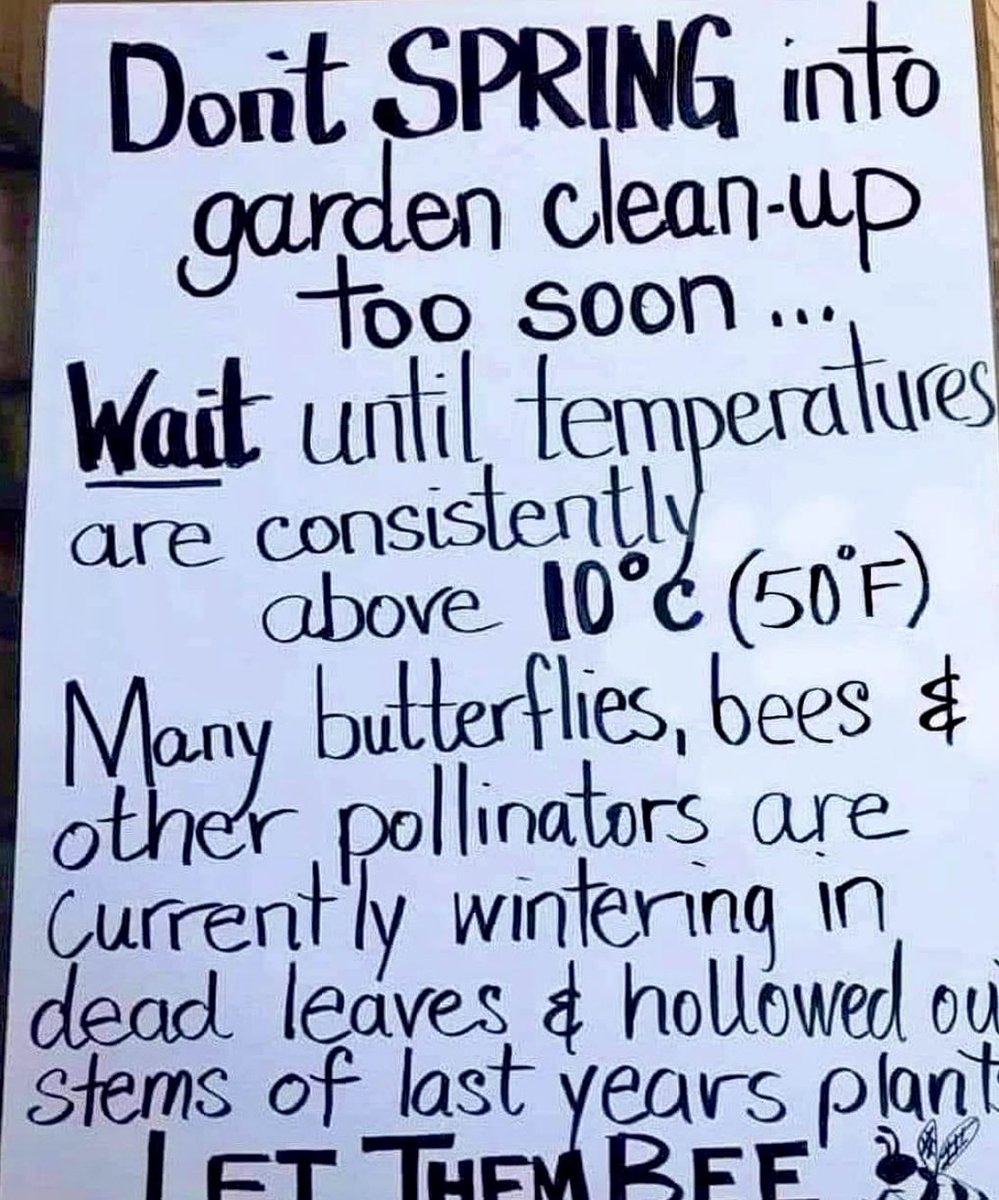 Don't SPRING into
garden clean-up
too soon...
Wait until temperatures
are consistently
above 10°C (50°F)
Many butterflies, bees &
other pollinators are
currently wintering in
dead leaves & hollowed ou
stems of last years plant
LET THEM BEE